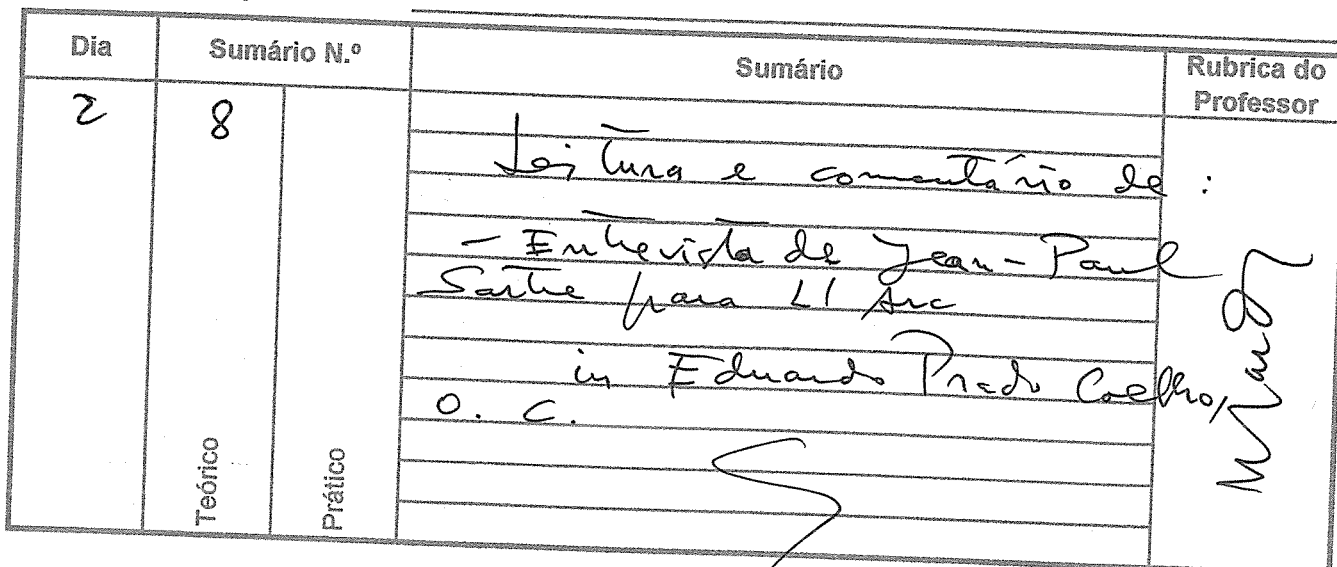 Dia Sumário N.º Sumário Rubrica do Professor
2 8
Leitura e comentário de :
- Entrevista de Jean-Paul
Sartre para L'Arc
in Eduardo Prado Coelho,
O. C.
Teórico Prático